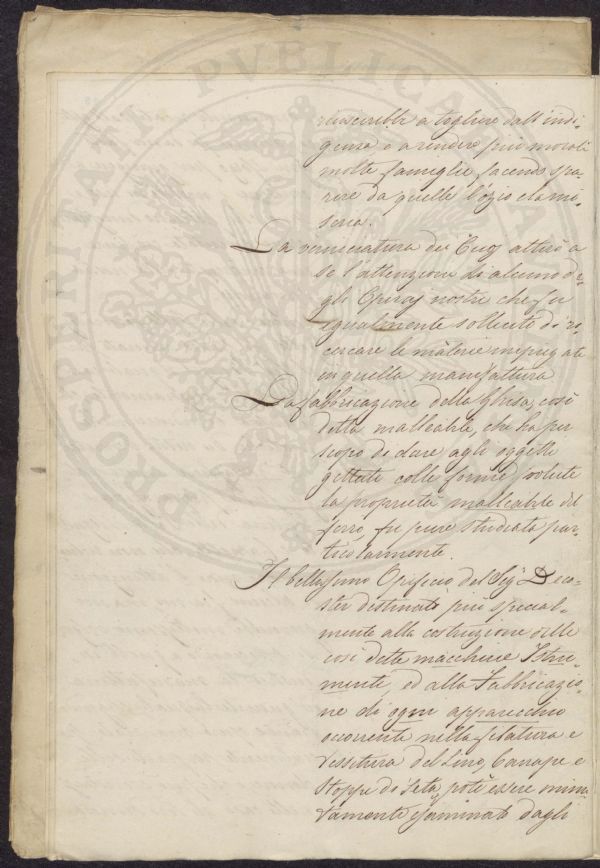 riuscirebbe a togliere dall'indi-
genza e a rendere più morali
molte famiglie facendo spa-
rire da quelle l'ozio e la mi-
seria.
La verniciatura dei Cuoj attirò a
se l'attenzione di alcuno de-
gli Operaj nostri che fu
egualmente sollecito di ri-
cercare le materie impiegate
in quella manifattura
La fabbricazione della Ghisa, così
detta malleabile, che ha per
scopo di dare agli oggetti
gettati colle forme volute
la proprietà malleabile del
ferro fu pure studiata par-
ticolarmente.
Il bellissimo Opificio del Sig.r Deco-
ster destinato più special-
mente alla costruzione delle
così dette macchine Istru-
mente, ed alla Fabbricazio-
ne di ogni apparecchio
occorrente nella filatura e
tessitura del Lino, Canape e
Stoppe di Seta, potè essere minu-
tamente esaminato dagli
PROSPERITATI PVBLICAE